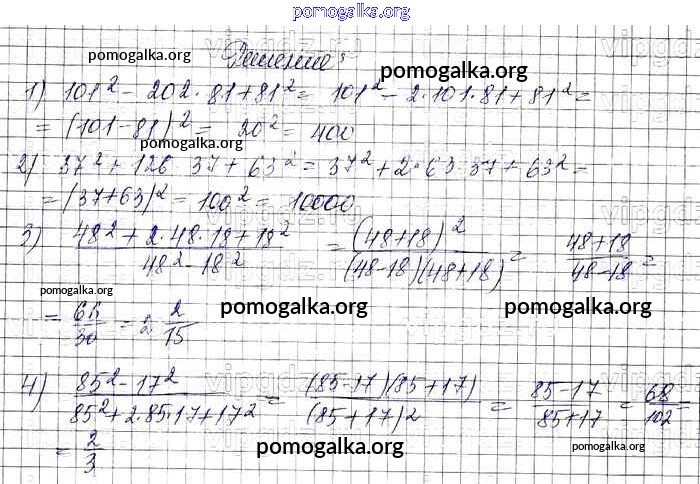 pomogalka.org
Решение:
pomogalka.org
pomogalka.org
1) 101² - 202 · 81 + 81² = 101² - 2·101·81 + 81² =
= (101 - 81)² = 20² = 400
pomogalka.org
2) 37² + 126 · 37 + 63² = 37² + 2·63·37 + 63² =
= (37+63)² = 100² = 10000
3) 48² + 2·48·18 + 18² / 48² - 18² = (48+18)² / (48-18)(48+18) = 48+18 / 48-18 =
pomogalka.org
pomogalka.org
pomogalka.org
= 66/30 = 2 2/15
4) 85² - 17² / 85² + 2·85·17 + 17² = (85-17)(85+17) / (85+17)² = 85-17 / 85+17 = 68/102 =
= 2/3
pomogalka.org
pomogalka.org